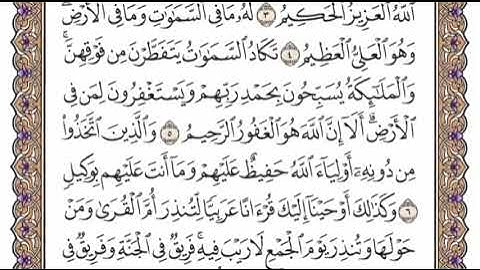 ٱللَّهُ ٱلْعَزِيزُ ٱلْحَكِيمُ ٣ لَهُۥ مَا فِى ٱلسَّمَٰوَٰتِ وَمَا فِى ٱلْأَرْضِ ۖ
وَهُوَ ٱلْعَلِىُّ ٱلْعَظِيمُ ٤ تَكَادُ ٱلسَّمَٰوَٰتُ يَتَفَطَّرْنَ مِن فَوْقِهِنَّ ۚ
وَٱلْمَلَٰٓئِكَةُ يُسَبِّحُونَ بِحَمْدِ رَبِّهِمْ وَيَسْتَغْفِرُونَ لِمَن فِى
ٱلْأَرْضِ ۗ أَلَآ إِنَّ ٱللَّهَ هُوَ ٱلْغَفُورُ ٱلرَّحِيمُ ٥ وَٱلَّذِينَ ٱتَّخَذُوا۟
مِن دُونِهِۦٓ أَوْلِيَآءَ ٱللَّهُ حَفِيظٌ عَلَيْهِمْ وَمَآ أَنتَ عَلَيْهِم بِوَكِيلٍ
٦ وَكَذَٰلِكَ أَوْحَيْنَآ إِلَيْكَ قُرْءَانًا عَرَبِيًّا لِّتُنذِرَ أُمَّ ٱلْقُرَىٰ وَمَنْ
حَوْلَهَا وَتُنذِرَ يَوْمَ ٱلْجَمْعِ لَا رَيْبَ فِيهِ ۚ فَرِيقٌ فِى ٱلْجَنَّةِ وَفَرِيقٌ فِى